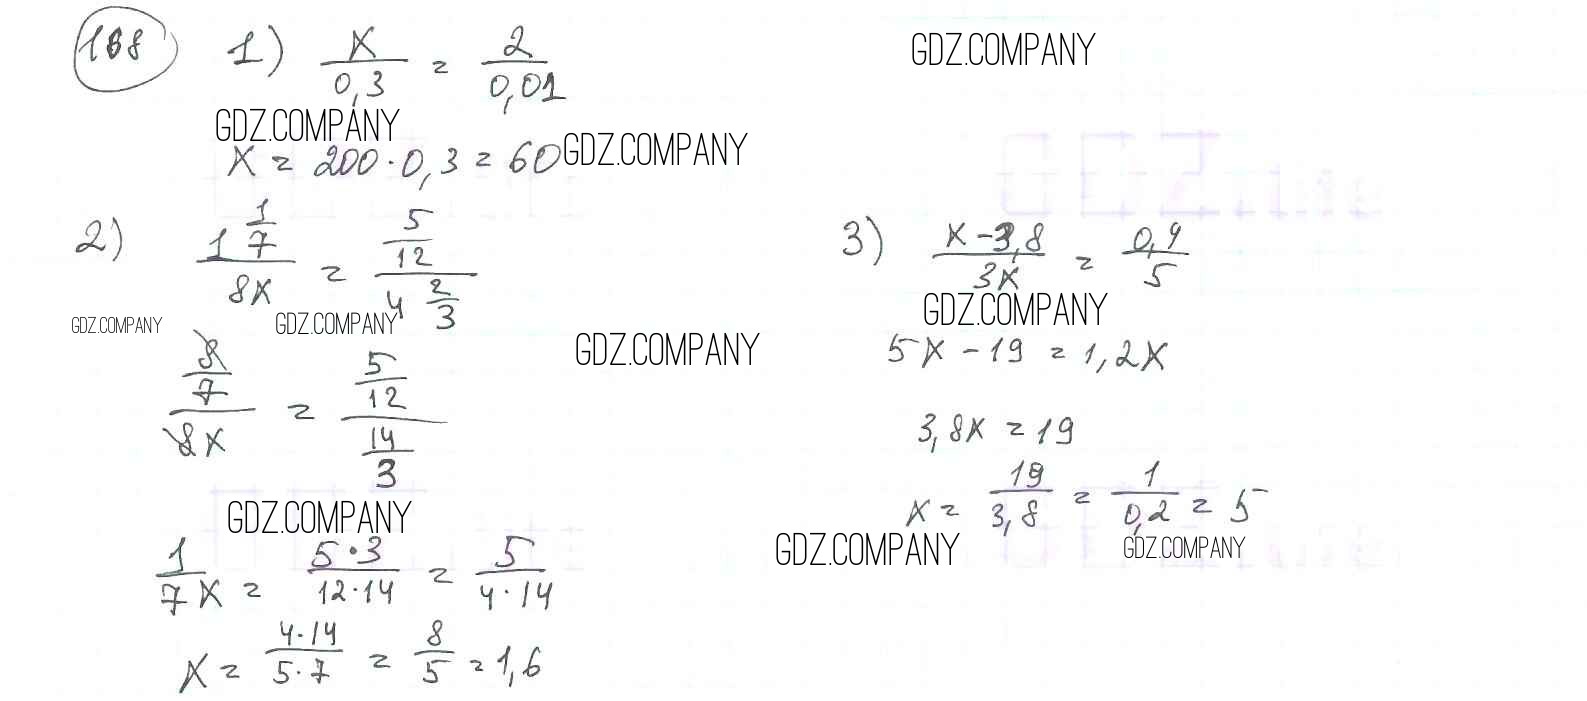 168 1) x/0,3 = 2/0,01
GDZ.COMPANY
GDZ.COMPANY
x = 200·0,3 = 60 GDZ.COMPANY
2) 1 1/7 / 8x = 5/12 / 4 2/3
GDZ.COMPANY GDZ.COMPANY
8/7 / 8x = 5/12 / 14/3
GDZ.COMPANY
GDZ.COMPANY
1/7x = 5·3/12·14 = 5/4·14
x = 4·14/5·7 = 8/5 = 1,6
3) x-3,8/3x = 0,4/5
GDZ.COMPANY
5x - 19 = 1,2x
3,8x = 19
x = 19/3,8 = 1/0,2 = 5
GDZ.COMPANY GDZ.COMPANY